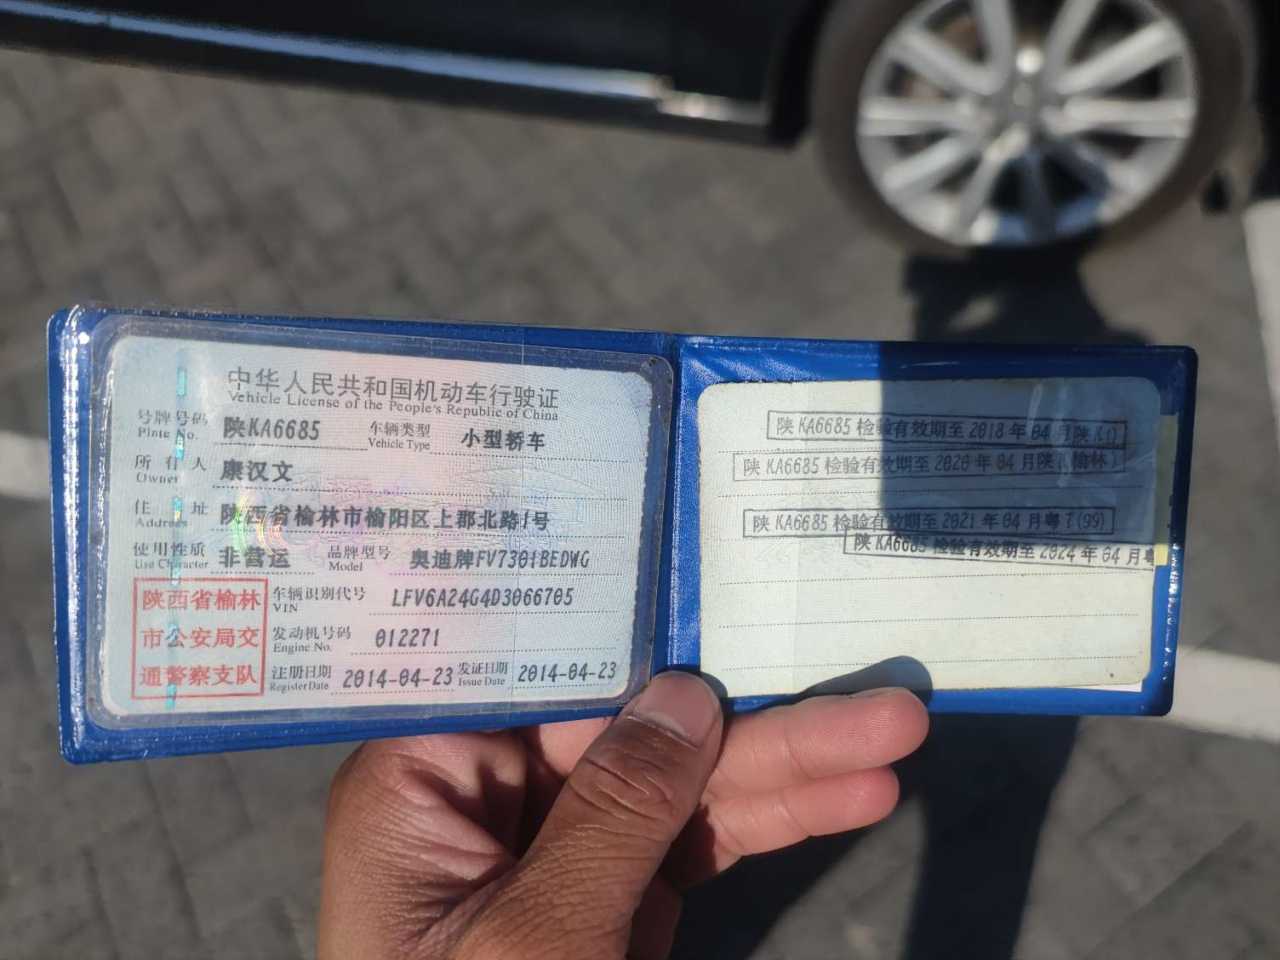 中华人民共和国机动车行驶证
Vehicle License of the People's Republic of China
号牌号码 陕KA6685 车辆类型 小型轿车
Plate No. Vehicle Type
所有人 康汉文
Owner
住址 陕西省榆林市榆阳区上郡北路1号
Address
使用性质 非营运 品牌型号 奥迪牌FV7301BEDWG
Use Character Model
陕西省榆林 车辆识别代号 LFV6A24G4D3066705
VIN
市公安局交 发动机号码 012271
Engine No.
通警察支队 注册日期 2014-04-23 发证日期 2014-04-23
Register Date Issue Date
陕KA6685 检验有效期至 2018 年 04 月陕K()
陕 KA6685 检验有效期至 2020 年 04 月陕(榆林)
陕 KA6685 检验有效期至 2021 年 04 月粤T(99)
陕 KA6685 检验有效期至 2024 年 04 月粤